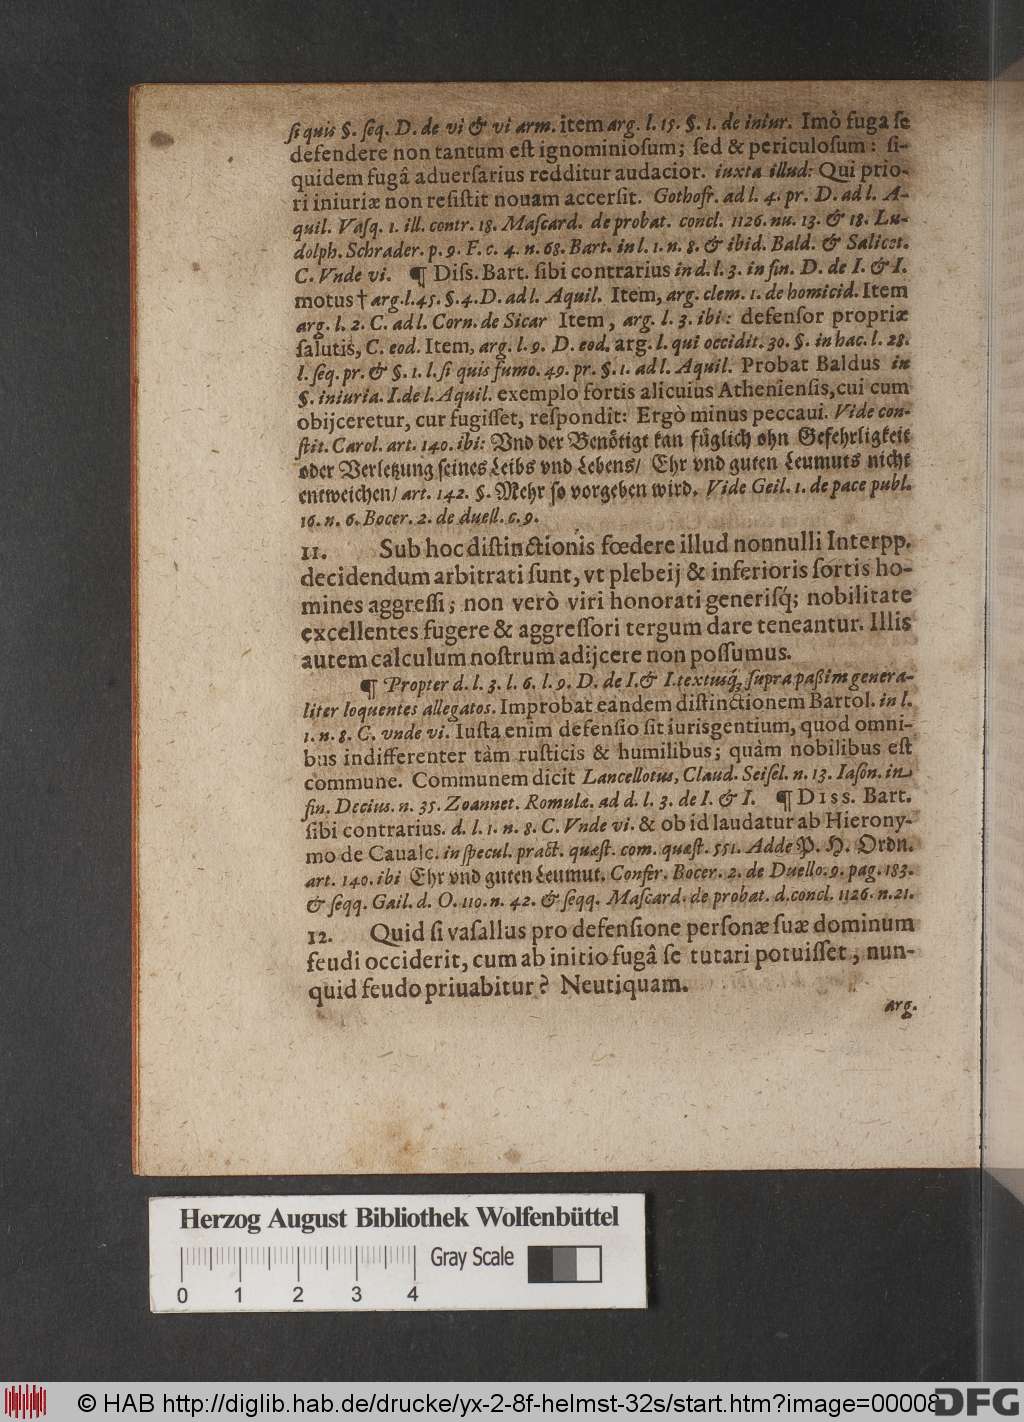 ſi quis §. ſeq. D. de vi & vi arm. item arg. l. 15. §. 1. de iniur. Imò fuga ſe
defendere non tantum eſt ignominioſum; ſed & periculoſum: ſi-
quidem fugâ aduerſarius redditur audacior. iuxta illud: Qui prio-
ri iniuriæ non reſiſtit nouam accerſit. Gothofr. ad l. 4. pr. D. ad l. A-
quil. Vaſq. 1. ill. contr. 18. Maſcard. de probat. concl. 1126. nu. 13. & 18. Lu-
dolph. Schrader. p. 9. F. c. 4. n. 68. Bart. in l. 1. n. 8. & ibid. Bald. & Salicet.
C. Vnde vi. ¶ Diſs. Bart. ſibi contrarius in d. l. 3. in fin. D. de I. & I.
motus † arg. l. 45. §. 4. D. ad l. Aquil. Item, arg. clem. 1. de homicid. Item
arg. l. 2. C. ad l. Corn. de Sicar Item, arg. l. 3. ibi: defenſor propriæ
ſalutis, C. eod. Item, arg. l. 9. D. eod. arg. l. qui occidit. 30. §. in hac. l. 28.
l. ſeq. pr. & §. 1. l. ſi quis fumo. 49. pr. §. 1. ad l. Aquil. Probat Baldus in
§. iniuria. I. de l. Aquil. exemplo fortis alicuius Athenienſis, cui cum
obijceretur, cur fugiſſet, reſpondit: Ergò minus peccaui. Vide con-
ſtit. Carol. art. 140. ibi: Vnd der Benötigt kan füglich ohn Gefehrligkeit
oder Verletzung ſeines Leibs vnd Lebens/ Ehr vnd guten Leumuts nicht
entweichen/ art. 142. §. Mehr ſo vorgeben wird. Vide Geil. 1. de pace publ.
16. n. 6. Bocer. 2. de duell. c. 9.
11. Sub hoc diſtinctionis fœdere illud nonnulli Interpp.
decidendum arbitrati ſunt, vt plebeij & inferioris ſortis ho-
mines aggreſſi; non verò viri honorati generiſq́; nobilitate
excellentes fugere & aggreſſori tergum dare teneantur. Illis
autem calculum noſtrum adijcere non poſſumus.
¶ Propter d. l. 3. l. 6. l. 9. D. de I. & I. textusq́; ſupra paßim genera-
liter loquentes allegatos. Improbat eandem diſtinctionem Bartol. in l.
1. n. 8. C. vnde vi. Iuſta enim defenſio ſit iurisgentium, quod omni-
bus indifferenter tàm ruſticis & humilibus; quàm nobilibus eſt
commune. Communem dicit Lancellotus, Claud. Seiſel. n. 13. Iaſon. in
fin. Decius. n. 35. Zoannet. Romulæ. ad d. l. 3. de I. & I. ¶ Diss. Bart.
ſibi contrarius. d. l. 1. n. 8. C. Vnde vi. & ob id laudatur ab Hierony-
mo de Caualc. in ſpecul. pract. quæſt. com. quæſt. 551. Adde P. H. Ordn.
art. 140. ibi Ehr vnd guten Leumut. Confer. Bocer. 2. de Duello. 9. pag. 183.
& ſeqq. Gail. d. O. 110. n. 42. & ſeqq. Maſcard. de probat. d. concl. 1126. n. 21.
12. Quid ſi vaſallus pro defenſione perſonæ ſuæ dominum
feudi occiderit, cum ab initio fugâ ſe tutari potuiſſet, nun-
quid feudo priuabitur? Neutiquam.
arg.
Herzog August Bibliothek Wolfenbüttel
Gray Scale
0 1 2 3 4
© HAB http://diglib.hab.de/drucke/yx-2-8f-helmst-32s/start.htm?image=00008
DFG